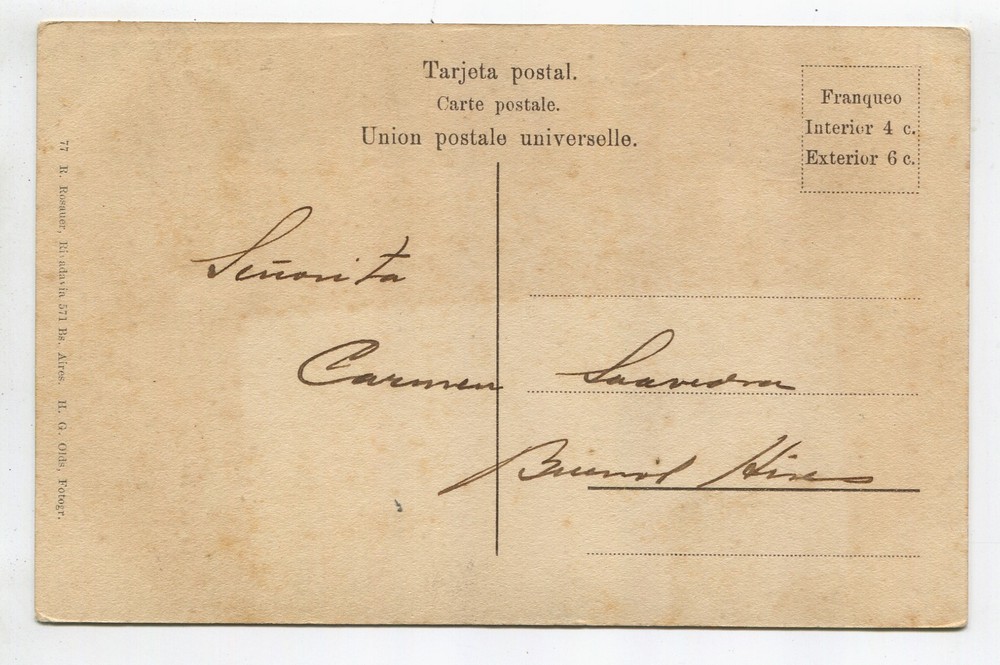 Tarjeta postal.
Carte postale.
Union postale universelle.
Franqueo
Interior 4 c.
Exterior 6 c.
Señorita
Carmen Saavedra
Buenos Aires
77 R. Rosauer, Rivadavia 571 Bs. Aires. H. G. Olds, Fotogr.